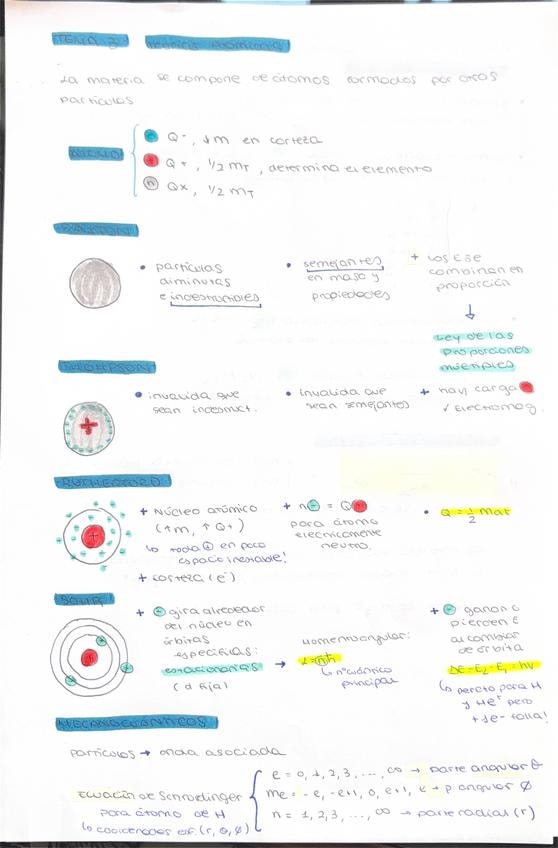 TEMA 3 Teorías atómicas
La materia se compone de átomos formados por otras
partículas
- Q-, ↓m en corteza
+ Q+, 1/2 mT, determina el elemento
n Qx, 1/2 mT
DALTON
• partículas
diminutas
e indestructibles
• semejantes
en masa y
propiedades
+ los E se
combinan en
proporción
↓
Ley de las
proporciones
múltiples
THOMPSON
+
• invalida que
sean indestruct.
• invalida que
sean semejantes
+ hay carga
✓ electromag.
RUTHERFORD
+
+ Núcleo atómico
(↑m, ↑Q+)
↳ toda ⊕ en poco
espacio inestable!
+ corteza (e-)
+ n⊖ = Q⊕
para átomo
eléctricamente
neutro.
• Q = 1/2 Mat
BOHR
+
+ ⊖ gira alrededor
del núcleo en
órbitas
específicas:
estacionarias
(d fija)
→
Momento angular:
L = nħ
↳ nº cuántico
principal
+ ⊖ gana o
pierde E
al cambiar
de órbita
ΔE = E2 - E1 = hν
↳ perfecto para H
y He+ pero
+1e- falla!
partículas → onda asociada
Ecuación de Schroedinger
para átomo de H
↳ coordenadas esf. (r, θ, ϕ)
e = 0, 1, 2, 3, ..., ∞ → parte angular θ
me = -e, -e+1, 0, e+1, e → p. angular ϕ
n = 1, 2, 3, ..., ∞ → parte radial (r)